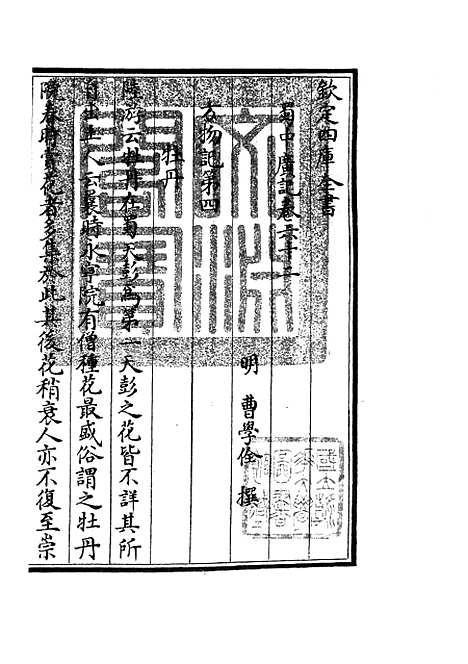 欽定四庫全書
蜀中廣記卷六十二
明 曹學佺 撰
方物記第四
牡丹
陸游云牡丹在蜀天彭為第一天彭之花皆不詳其所
自出土人云曩時永寧院有僧種花最盛俗謂之牡丹
院春時賞花者多集於此其後花稍衰人亦不復至崇